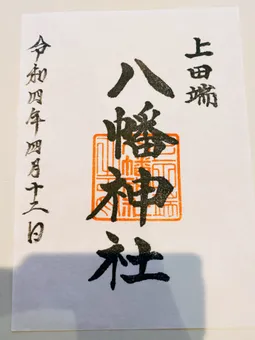 上田端
八幡神社
令和四年四月十二日